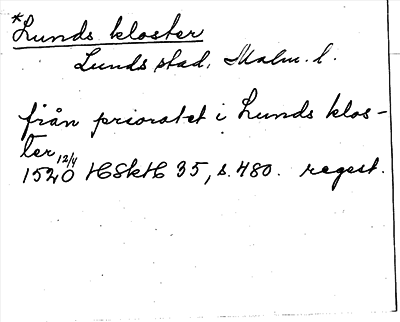 *Lunds kloster
Lunds stad, Malm. l.
från prioratet i Lunds klos-
ter
12/4
1520 HSkH 35, s. 480. regest.